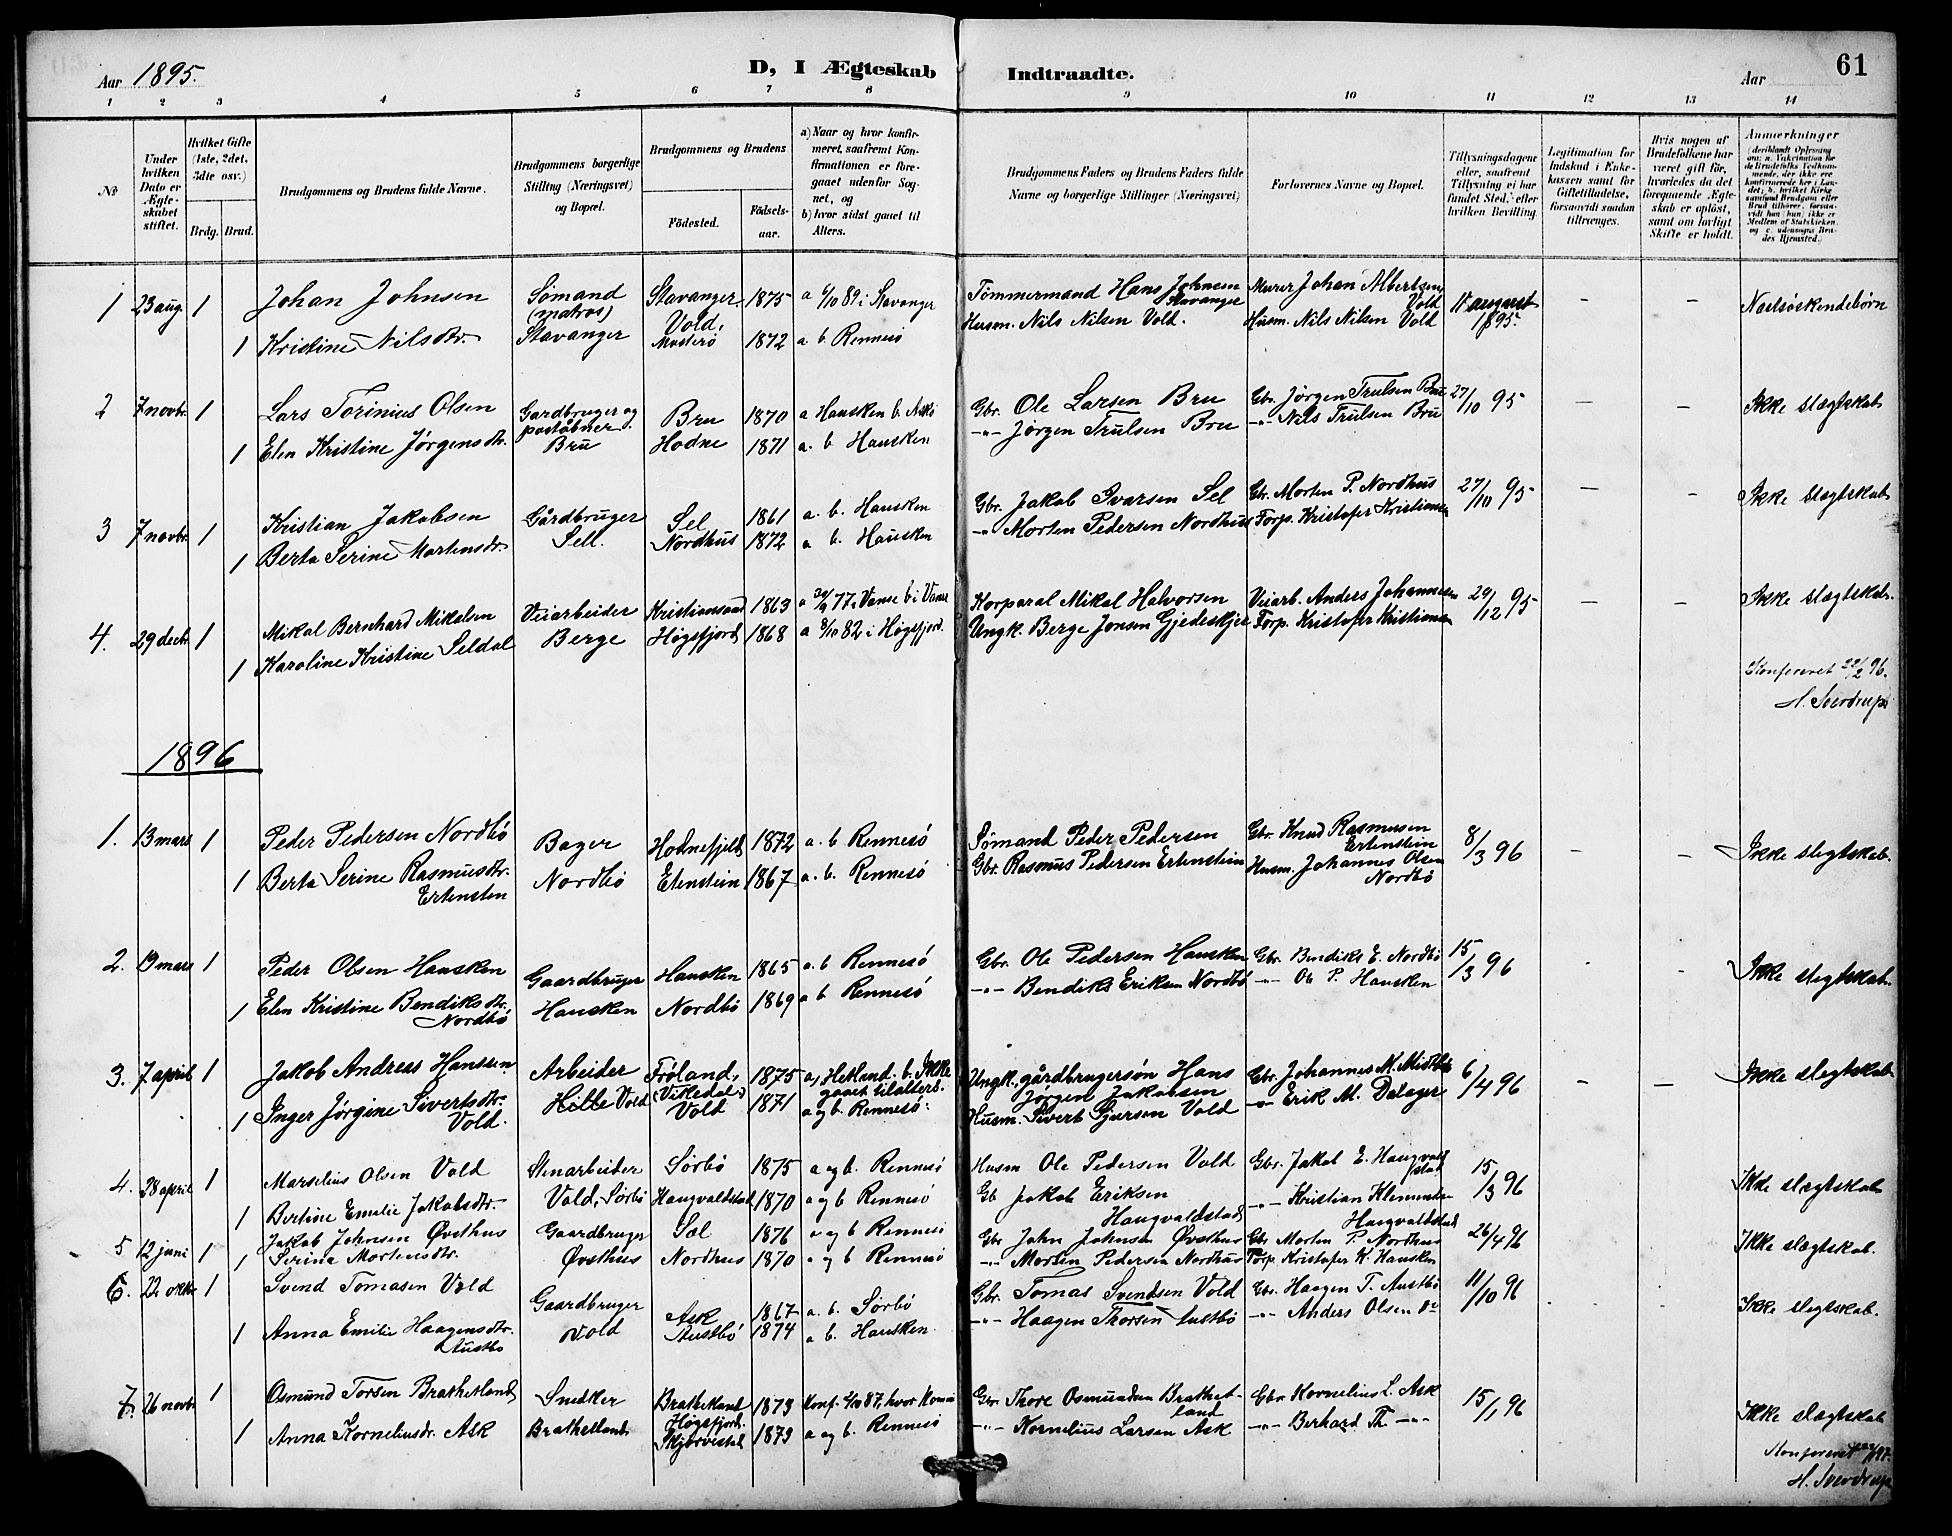 Aar 1895.
D, I Ægteskab Indtraadte.
Aar
61
1 2 3 4 5 6 7 8 9 10 11 12 13 14
No
Under hvilken Dato er Ægteskabet stiftet.
Hvilket Gifte (1ste, 2det, 3dte osv.)
Brdg. Brud.
Brudgommens og Brudens fulde Navne.
Brudgommens borgerlige Stilling (Næringsvei) og Bopæl.
Brudgommens og Brudens
Födested.
Födselsaar.
a) Naar og hvor konfirmeret, saafremt Konfirmationen er foregaaet udenfor Sognet, og
b) hvor sidst gaaet til Alters.
Brudgommens Faders og Brudens Faders fulde Navne og borgerlige Stillinger (Næringsvei)
Forlovernes Navne og Bopæl.
Tillysningsdagene eller, saafremt Tillysning ei har fundet Sted, efter hvilken Bevilling.
Legitimation for Indskud i Enkekassen samt for Giftetilladelse, forsaavidt saadan tiltrænges.
Hvis nogen af Brudefolkene har været gift för, hvorledes da det foregaaende Ægteskab er oplöst, samt om lovligt Skifte er holdt.
Anmerkninger
1 23 aug. 1 Johan Johnsen Sømand (matros) Stavanger 1875 a 6/10 89 i Stavanger Tømmermand Hans Johnsen Stavanger Murer Johan Albertsen Vold 11 august 1895. – – Næstsøskendebørn
1 Kristine Nilsdtr. Stavanger Vold, Mosterø 1872 a b Rennesö Husm. Nils Nilsen Vold. Husm. Nils Nilsen Vold
2 7 novbr. 1 Lars Torinius Olsen Gardbruger og postaabner Bru 1870 a Hausken b. Askö Gbr. Ole Larsen Bru Gbr. Jørgen Trulsen Bru 27/10 95 – – Ikke slægtskab
1 Elen Kristine Jørgensdtr. Bru Hodne 1871 a. b Hausken –"– Jørgen Trulsen Bru –"– Nils Trulsen Bru
3 7 novbr. 1 Kristian Jakobsen Gårdbruger Sel 1861 a. b. Hausken Gbr. Jakob Ivarsen Sel Gbr. Morten P. Nordhus 27/10 95 – – Ikke slægtskab
1 Berta Serine Mortensdtr. Sell. Nordhus 1872 a b. Hausken –"– Morten Pedersen Nordhus Forp. Kristofer Kristiansen
4. 29 decbr. 1 Mikal Bernhard Mikalsen Veiarbeider Kristiansand 1863 77 i Vanse b i Vanse Korporal Mikal Halvorsen Veiarb. Anders Johannesen 29/12 95 – – Ikke slægtskab.
1 Karoline Kristine Seldal Berge Høgsfjord 1868 a 8/10 82 i Høgsfjord. Ungk. Berge Jonsen Gjedeskjer Forp. Kristofer Kristiansen
Konfereret 22/2 96.
H. Sverdrup
1896
1. 13 mars 1 Peder Pedersen Nordbö Bager Hodnefjeld 1872 a. b Rennesö Sømand Peder Pedersen Gbr. Knud Rasmusen Ertenstein 8/3 96 – – Ikke slegtskab.
1 Berta Serine Rasmusdtr. Ertensten Nordbö Etenstein 1867 a. b. Rennesö Gbr. Rasmus Pedersen Ertenstein Husm. Johannes Olsen Nordbö
2. 19 mars 1 Peder Olsen Hausken Gaardbruger Hausken 1865 a. b Rennesö Gbr. Ole Pedersen Hausken Gbr. Bendiks E. Nordbö 15/3 96 - - Ikke slegtskab.
1 Elen Kristine Bendiksdtr. Nordbö Hausken Nordbö 1869 a b Rennesö –"– Bendiks Eriksen Nordbö –"– Ole P. Hausken
3. 7 april 1 Jakob Andreas Hanssen Arbeider Frøland, (Vikedal) 1875 a, Hetland. b. Ikke gaaet til alters. Ungk., gårdbrugersøn Hans Jørgen Jakobsen Gbr. Johannes M. Midtbö 6/4 96 – – Ikke slegtskab
1 Inger Jørgine Sivertsdtr. Vold. Hille Vold Vold 1871 a og b. Rennesö. Husm. Sivert Gjersen Vold –"– Erik M. Dalager
4. 28 april 1 Marselius Olsen Vold Stenarbeider Sørbö 1875 a og b. Rennesö Husm Ole Pedersen Vold Gbr. Jakob E. Haugvaldstad 15/3 96 Ikke slægtskab
1 Bertine Emelie Jakobsdtr. Vold, Sørbö Haugvaldstad 1870 a og b Rennesö Gb Jakob Eriksen Haugvaldstad –"– Kristian Klemmetsen Haugvaldstad
5 12 juni 1 Jakob Johnsen Øvsthus Gaardbruger Sæl 1876 a og b Rennesö Gbr John Johnsen Øvsthus Gbr Morten P. Nordhus 26/4 96 Ikke slægtskab.
1 Serina Mortensdtr. Øvsthus Nordhus 1870 a og b Rennesö –"– Morten Pedersen Nordhus Forp Kristofer K. Hausken
6. 22 oktbr 1 Svend Tomasen Vold Gaardbruger Ask 1867 a. b. Sørbö Gbr. Tomas Svendsen Vold Gbr. Haagen T. Austbö 11/10 96 Ikke slægtskab.
1 Anna Emilie Haagensdtr. Austbo Vold Austbö 1874 a b. Hausken –"– Haagen Thorsen Austbö –"– Anders Olsen do
7. 26 novbr 1 Osmund Torsen Brathetland Snedker Brathetland Høgsfjord. 1873 Konf. 87, hvor Gbr. Thore Osmundsen Brathetland Gbr Kornelius L. Ask 15/ 96 Ikke slægtskab
1 Anna Korneliusdr. Ask Brathetland. Skjørvestad 1873 a og b. Rennesö –"– Kornelius Larsen Ask –"– Berhard Th –"–
Konfereret
H. Sverdrup